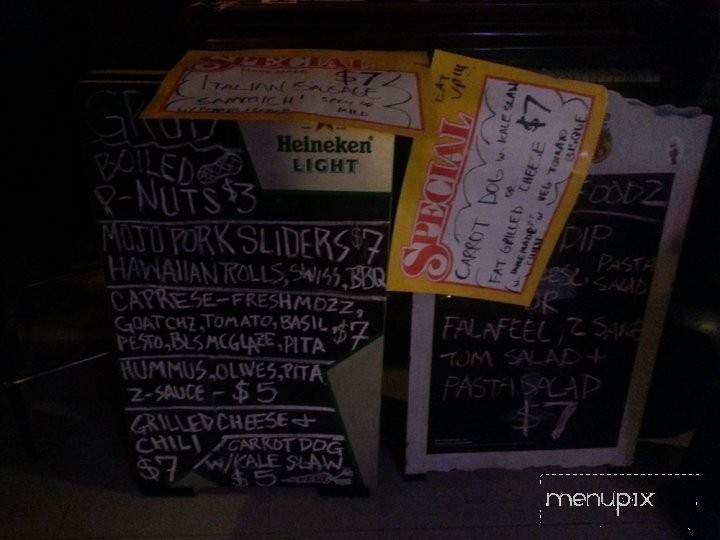 SPECIAL
$7
ITALIAN SAUSAGE
SAMMICH!
MILD
GRUB
Heineken
LIGHT
BOILED
P-NUTS $3
MOJO PORK SLIDERS $7
HAWAIIAN ROLLS, SWISS, BBQ
CAPRESE-FRESH MOZZ,
GOAT CHZ, TOMATO, BASIL, $7
PESTO, BLSMC GLAZE, PITA
HUMMUS, OLIVES, PITA
2-SAUCE - $5
GRILLED CHEESE +
CHILI
$7
CARROT DOG
W/KALE SLAW
$5
SPECIAL
EAT
UP!!!
CARROT DOG W KALE SLAW
OR
FAT GRILLED CHEESE $7
W VEG TOMATO
BISQUE
CHILI
FOODZ
DIP
PASTA
SALAD
OR
FALAFEEL, 2 SAUCE
TOM SALAD +
PASTA SALAD
$7
menupix